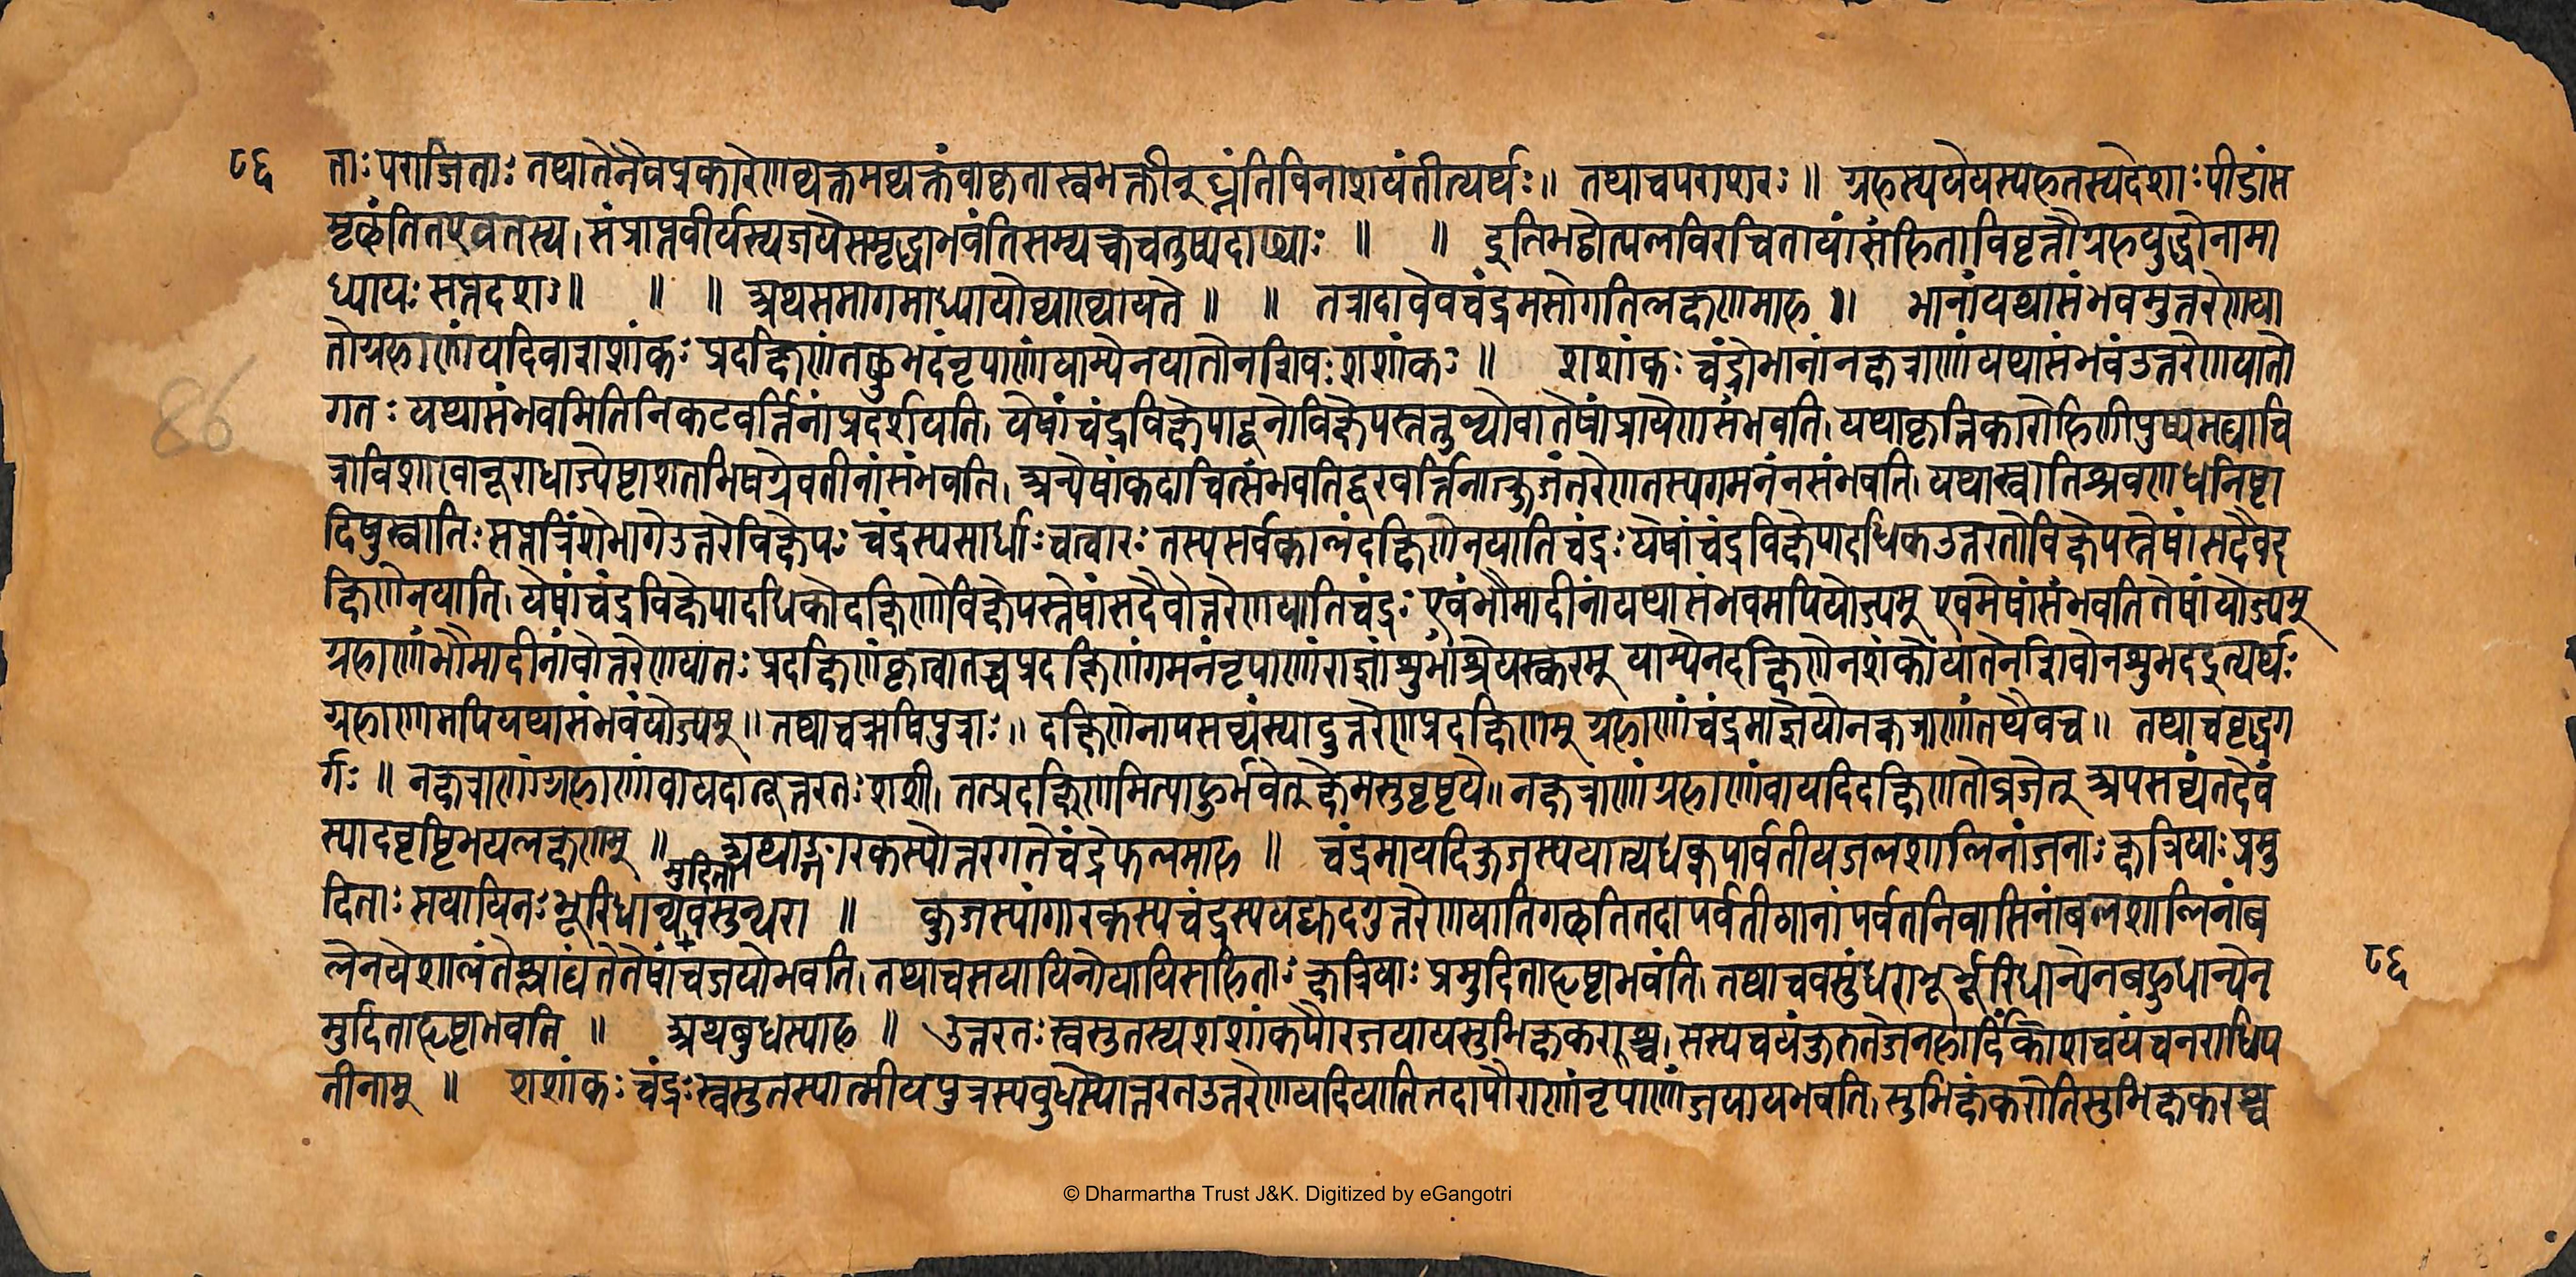 ८६ ताः पराजिताः तथातेनैवप्रकारेणव्यक्तमव्यक्तंवाकृतास्वभक्तीन्घ्नंतिविनाशयंतीत्यर्थः॥ तथाचपराशरः॥ ग्रहस्ययेयस्यहतस्यदेशाः पीडांस
मृछंतितएवतस्य। संप्राप्तवीर्यस्यजयेसमृद्धाभवंतिसम्यक्चचतुष्पदाढ्याः ॥ ॥ इतिभट्टोत्पलविरचितायांसंहिताविवृत्तौग्रहयुद्धोनामा
ध्यायः सप्तदशः॥ ॥ ॥ अथसमागमाध्यायोव्याख्यायते ॥ ॥ तत्रादावेवचंद्रमसोगतिलक्षणमाह ॥ भानांयथासंभवमुत्तरेणया
तोग्रहाणांयदिवाशशांकः प्रदक्षिणंतछुभदंनृपाणांयाम्येनयातोनशिवः शशांकः ॥ शशांकः चंद्रोभानांनक्षत्राणांयथासंभवंउत्तरेणयातो
गतः यथासंभवमितिनिकटवर्त्तिनांप्रदर्शयति। येषांचंद्रविक्षेपादूनोविक्षेपस्तत्तुल्योवातेषांप्रायेणसंभवति। यथाकृत्तिकारोहिणीपुष्यमघाचि
त्राविशाखानूराधाज्येष्टाशतभिषग्रेवतीनांसंभवति। अन्येषांकदाचित्संभवतिदूरवर्त्तिनांत्क्रुजंतरेणतस्यगमनंनसंभवति। यथास्वातिश्रवणधनिष्टा
दिषुस्वातिः सप्तत्रिंशेभागेउत्तरेविक्षेपः चंद्रस्यसार्धाः चत्वारः तस्यसर्वकालंदक्षिणेनयातिचंद्रः येषांचंद्रविक्षेपादधिकउत्तरतोविक्षेपस्तेषांसदैवद
क्षिणेनयाति। येषांचंद्रविक्षेपादधिकोदक्षिणेविक्षेपस्तेषांसदैवोत्तरेणयातिचंद्रः एवंभौमादीनांयथासंभवमपियोज्यम् एवमेषांसंभवतितेषांयोज्यम्
ग्रहाणांभौमादीनांवोत्तरेणयातः प्रदक्षिणंकृत्वातच्चप्रदक्षिणंगमनंनृपाणांराज्ञांशुभांश्रेयस्करम् याम्येनदक्षिणेनशंकौयातेनशिवोनशुभदइत्यर्थः
ग्रहाणामपियथासंभवंयोज्यम्॥ तथाचऋषिपुत्राः॥ दक्षिणेनापसव्यंस्यादुत्तरेणप्रदक्षिणम् ग्रहाणांचंद्रमाज्ञेयोनक्षत्राणांतथैवच॥ तथाचवृद्धग
र्गः॥ नक्षत्राणांग्रहाणांवायदात्तूत्तरतः शशी। तत्प्रदक्षिणमित्याहुर्भवेत्क्षेमसुवृष्टये॥ नक्षत्राणांग्रहाणांवायदिदक्षिणतोव्रजेत् अपसव्यंतदेवं
स्यादवृष्टिभयलक्षणम् ॥ अथाङ्गारकस्योत्तरगतेचंद्रेफलमाह ॥ चंद्रमायदिकुजस्ययात्यधक्पार्वतीयजलशालिनांजनाः क्षत्रियाः प्रमु
मुदिता
दिताः सयायिनः भूरिधान्यवसुन्धरा ॥ कुजस्यांगारकस्यचंद्रस्ययद्युदगुत्तरेणयातिगछतितदापर्वतीठानांपर्वतनिवासिनांबलशालिनांब
लेनयेशालंतेश्लाघंतेतेषांचजयोभवति। तथाचसयायिनोयायिसहिताः क्षत्रियाः प्रमुदिताहृष्टाभवंति। तथाचवसुंधराभूर्भूरिधान्येनबहुधान्येन
८६
मुदिताहृष्टाभवति ॥ अथबुधस्याह ॥ उत्तरतः स्वसुतस्यशशांकपौरजयायसुभिक्षकरश्च। सस्यचयंकुरुतेजनहार्दिंकोशचयंचनराधिप
तीनाम् ॥ शशांकः चंद्रः स्वसुतस्यात्मीयपुत्रस्यबुधस्योत्तरतउत्तरेणयदियातितदापौराणांनृपाणांजयायभवति। सुभिक्षंकरोतिसुभिक्षकरश्च
86
© Dharmartha Trust J&K. Digitized by eGangotri